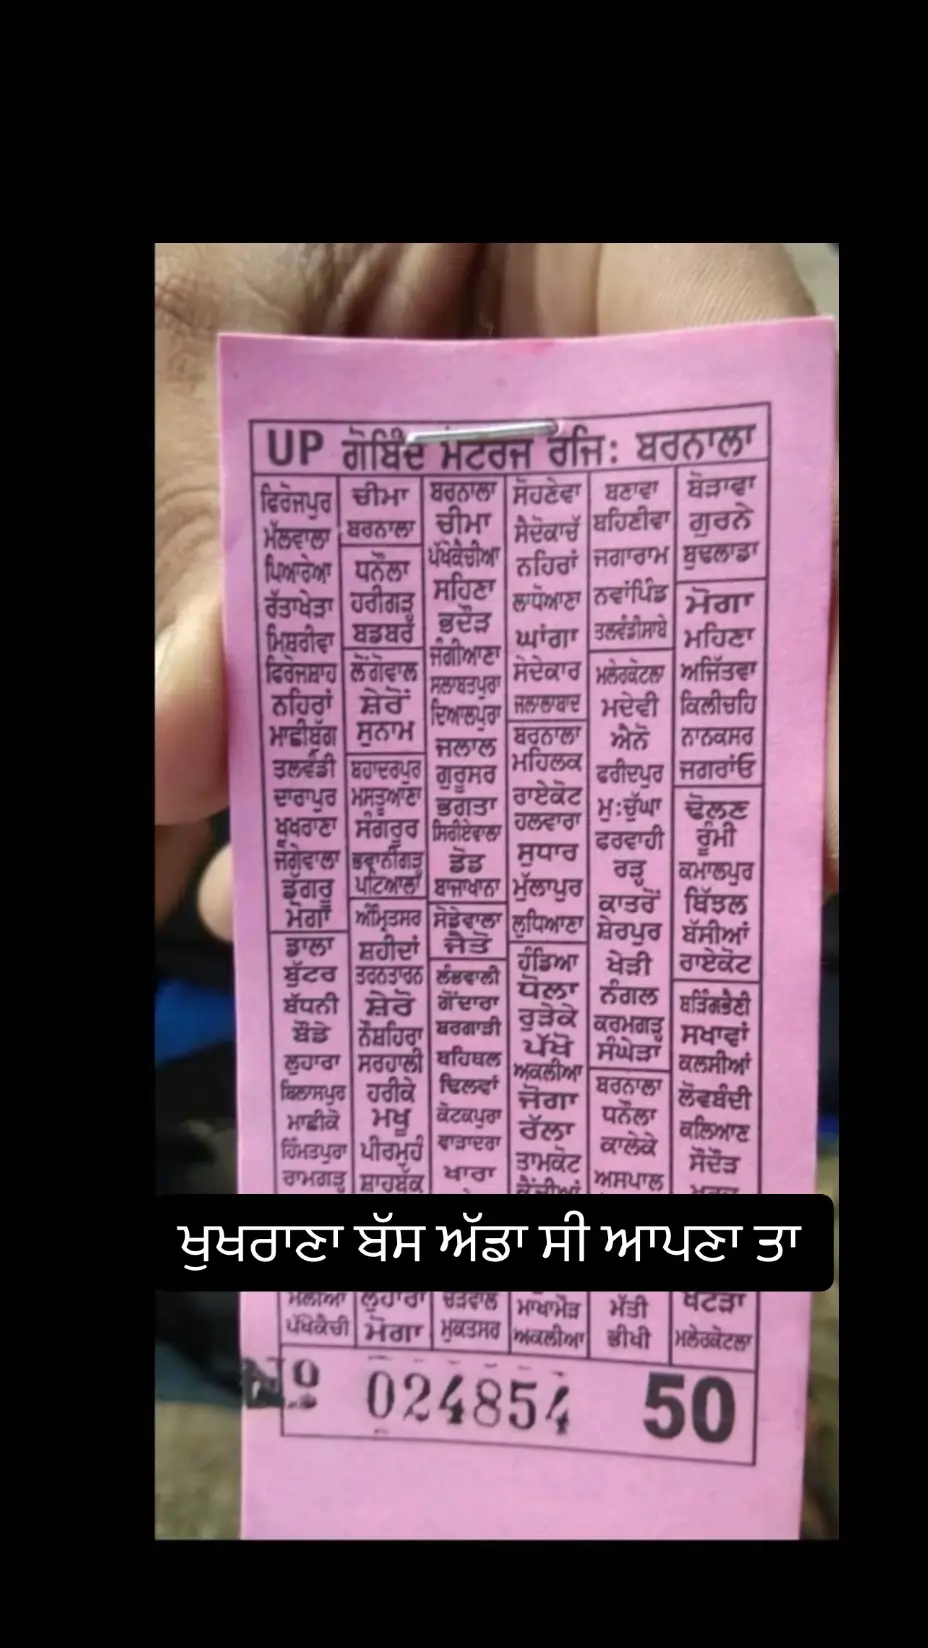 UP ਗੋਬਿੰਦ ਮੋਟਰਜ ਰਜਿ: ਬਰਨਾਲਾ
ਫਿਰੋਜਪੁਰ
ਮੱਲਵਾਲਾ
ਪਿਆਰੇਆ
ਰੱਤਾਖੇੜਾ
ਮਿਸ਼ਰੀਵਾ
ਫਿਰੋਜਸ਼ਾਹ
ਨਹਿਰਾਂ
ਮਾਛੀਬੁੱਗ
ਤਲਵੰਡੀ
ਦਾਰਾਪੁਰ
ਖੁਖਰਾਣਾ
ਜੋਗੇਵਾਲਾ
ਡਗਰੂ
ਮੋਗਾ
ਡਾਲਾ
ਬੁੱਟਰ
ਬੱਧਨੀ
ਬੌਡੇ
ਲੁਹਾਰਾ
ਬਿਲਾਸਪੁਰ
ਮਾਛੀਕੇ
ਹਿੰਮਤਪੁਰਾ
ਰਾਮਗੜ੍ਹ
ਮੱਲੀਆਂ
ਪੱਖੋਕੈਚੀ
ਚੀਮਾ
ਬਰਨਾਲਾ
ਧਨੌਲਾ
ਹਰੀਗੜ੍ਹ
ਬਡਬਰ
ਲੌਂਗੋਵਾਲ
ਸ਼ੇਰੋਂ
ਸੁਨਾਮ
ਬਹਾਦਰਪੁਰ
ਮਸਤੂਆਣਾ
ਸੰਗਰੂਰ
ਭਵਾਨੀਗੜ੍ਹ
ਪਟਿਆਲਾ
ਅੰਮ੍ਰਿਤਸਰ
ਸ਼ਹੀਦਾਂ
ਤਰਨਤਾਰਨ
ਸ਼ੇਰੋਂ
ਨੌਸ਼ਹਿਰਾ
ਸਰਹਾਲੀ
ਹਰੀਕੇ
ਮਖੂ
ਪੀਰਮੁਹੰ
ਸ਼ਾਹਬੁੱਕ
ਲੁਹਾਰਾ
ਮੋਗਾ
ਬਰਨਾਲਾ
ਚੀਮਾ
ਪੱਖੋਕੈਚੀਆ
ਸਹਿਣਾ
ਭਦੌੜ
ਜੰਗੀਆਣਾ
ਸਲਾਬਤਪੁਰਾ
ਦਿਆਲਪੁਰਾ
ਜਲਾਲ
ਗੁਰੂਸਰ
ਭਗਤਾ
ਸਿਰੀਏਵਾਲਾ
ਡੋਡ
ਬਾਜਾਖਾਨਾ
ਸੇਢੇਵਾਲਾ
ਜੈਤੋ
ਲੰਭਵਾਲੀ
ਗੋਂਦਾਰਾ
ਬਰਗਾੜੀ
ਬਹਿਬਲ
ਢਿਲਵਾਂ
ਕੋਟਕਪੁਰਾ
ਵਾੜਾਦਰਾ
ਖਾਰਾ
ਚੜੇਵਾਲ
ਮੁਕਤਸਰ
ਸੋਹਣੇਵਾ
ਸੈਦੋਕਾਚੱ
ਨਹਿਰਾਂ
ਲਾਧੋਆਣਾ
ਘਾਂਗਾ
ਸੇਦੇਕਾਰ
ਜਲਾਲਾਬਾਦ
ਬਰਨਾਲਾ
ਮਹਿਲਕ
ਰਾਏਕੋਟ
ਹਲਵਾਰਾ
ਸੁਧਾਰ
ਮੁੱਲਾਪੁਰ
ਲੁਧਿਆਣਾ
ਹੰਡਿਆ
ਧੋਲਾ
ਰੂੜੇਕੇ
ਪੱਖੋ
ਅਕਲੀਆ
ਜੋਗਾ
ਰੱਲਾ
ਤਾਮਕੋਟ
ਕੈਂਚੀਆਂ
ਮਾਖਾਮੋੜ
ਅਕਲੀਆ
ਬਣਾਵਾ
ਬਹਿਣੀਵਾ
ਜਗਾਰਾਮ
ਨਵਾਂਪਿੰਡ
ਤਲਵੰਡੀਸਾਬੋ
ਮਲੇਰਕੋਟਲਾ
ਮਦੇਵੀ
ਐਨੋ
ਫਰੀਦਪੁਰ
ਮੁ:ਚੁੱਘਾ
ਫਰਵਾਹੀ
ਰੜ੍ਹ
ਕਾਤਰੋਂ
ਸ਼ੇਰਪੁਰ
ਖੇੜੀ
ਨੰਗਲ
ਕਰਮਗੜ੍ਹ
ਸੰਘੇੜਾ
ਬਰਨਾਲਾ
ਧਨੌਲਾ
ਕਾਲੇਕੇ
ਅਸਪਾਲ
ਮੱਤੀ
ਭੀਖੀ
ਬੋੜਾਵਾ
ਗੁਰਨੇ
ਬੁਢਲਾਡਾ
ਮੋਗਾ
ਮਹਿਣਾ
ਅਜਿੱਤਵਾ
ਕਿਲੀਚਹਿ
ਨਾਨਕਸਰ
ਜਗਰਾਂਓ
ਢੋਲਣ
ਰੂੰਮੀ
ਕਮਾਲਪੁਰ
ਬਿੰਝਲ
ਬੱਸੀਆਂ
ਰਾਏਕੋਟ
ਬੜਿੰਗਭੈਣੀ
ਸਖਾਵਾਂ
ਕਲਸੀਆਂ
ਲੋਵਬੰਦੀ
ਕਲਿਆਣ
ਸੰਦੌੜ
ਖਟੜਾ
ਮਲੇਰਕੋਟਲਾ
ਖੁਖਰਾਣਾ ਬੱਸ ਅੱਡਾ ਸੀ ਆਪਣਾ ਤਾ
№ 024854 50